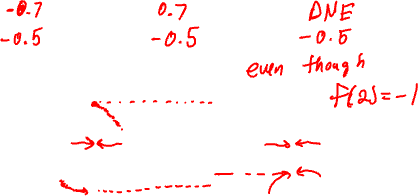 -0.7 0.7 DNE
-0.5 -0.5 -0.5
even though
f(2)=-1